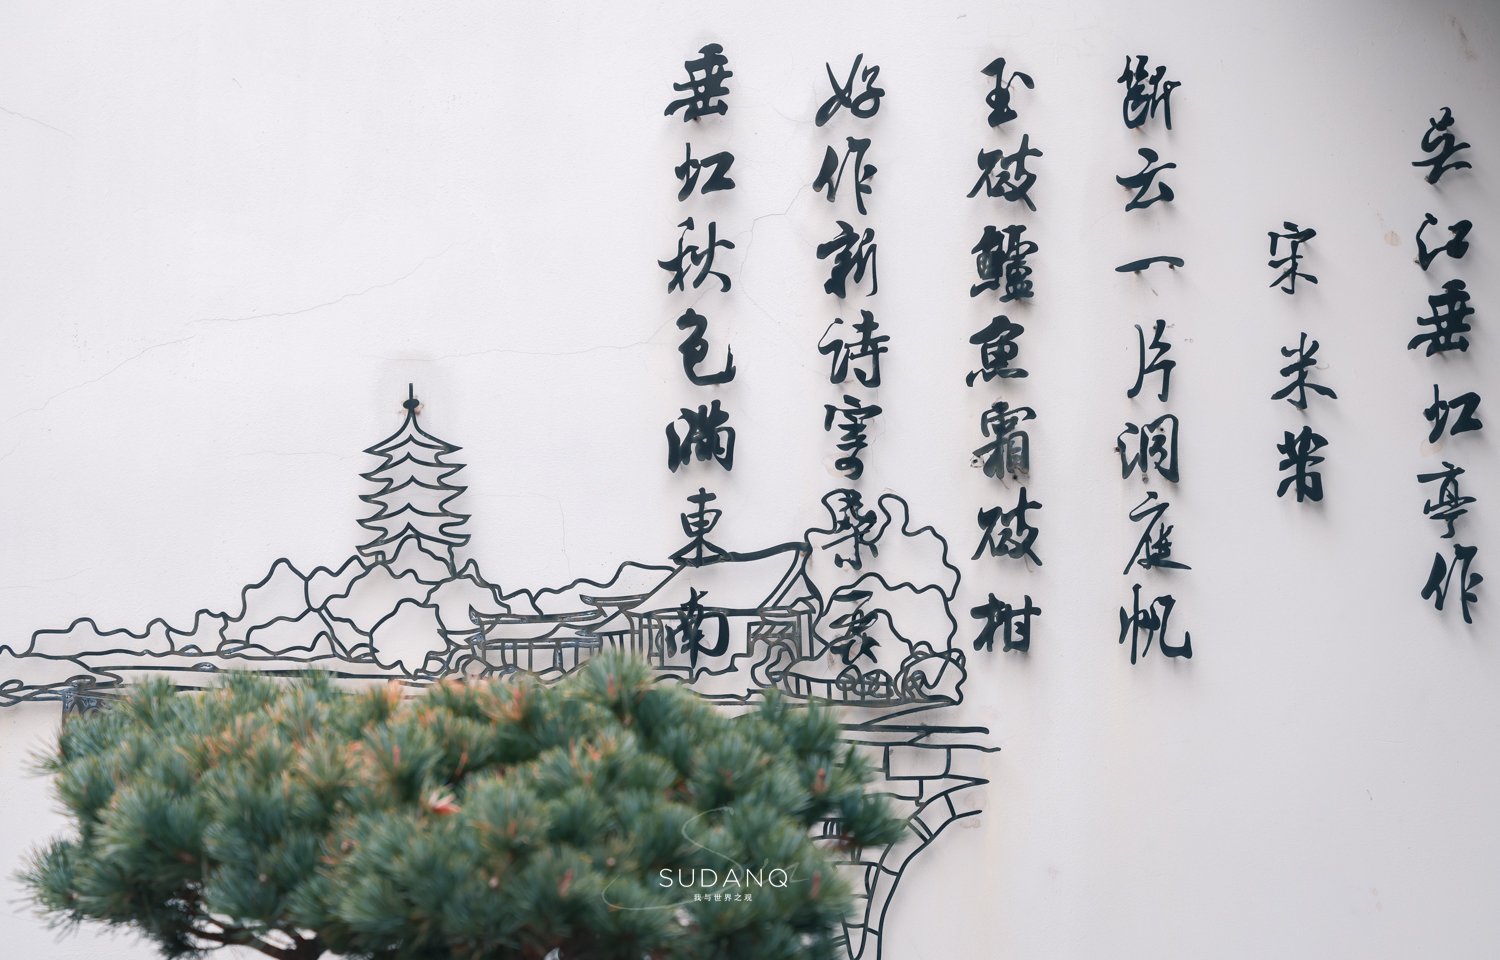 吴江垂虹亭作
宋 米芾
斷云一片洞庭帆
玉破鱸魚霜破柑
好作新诗寄桑苧
垂虹秋色滿東南
SUDANQ
我与世界之观